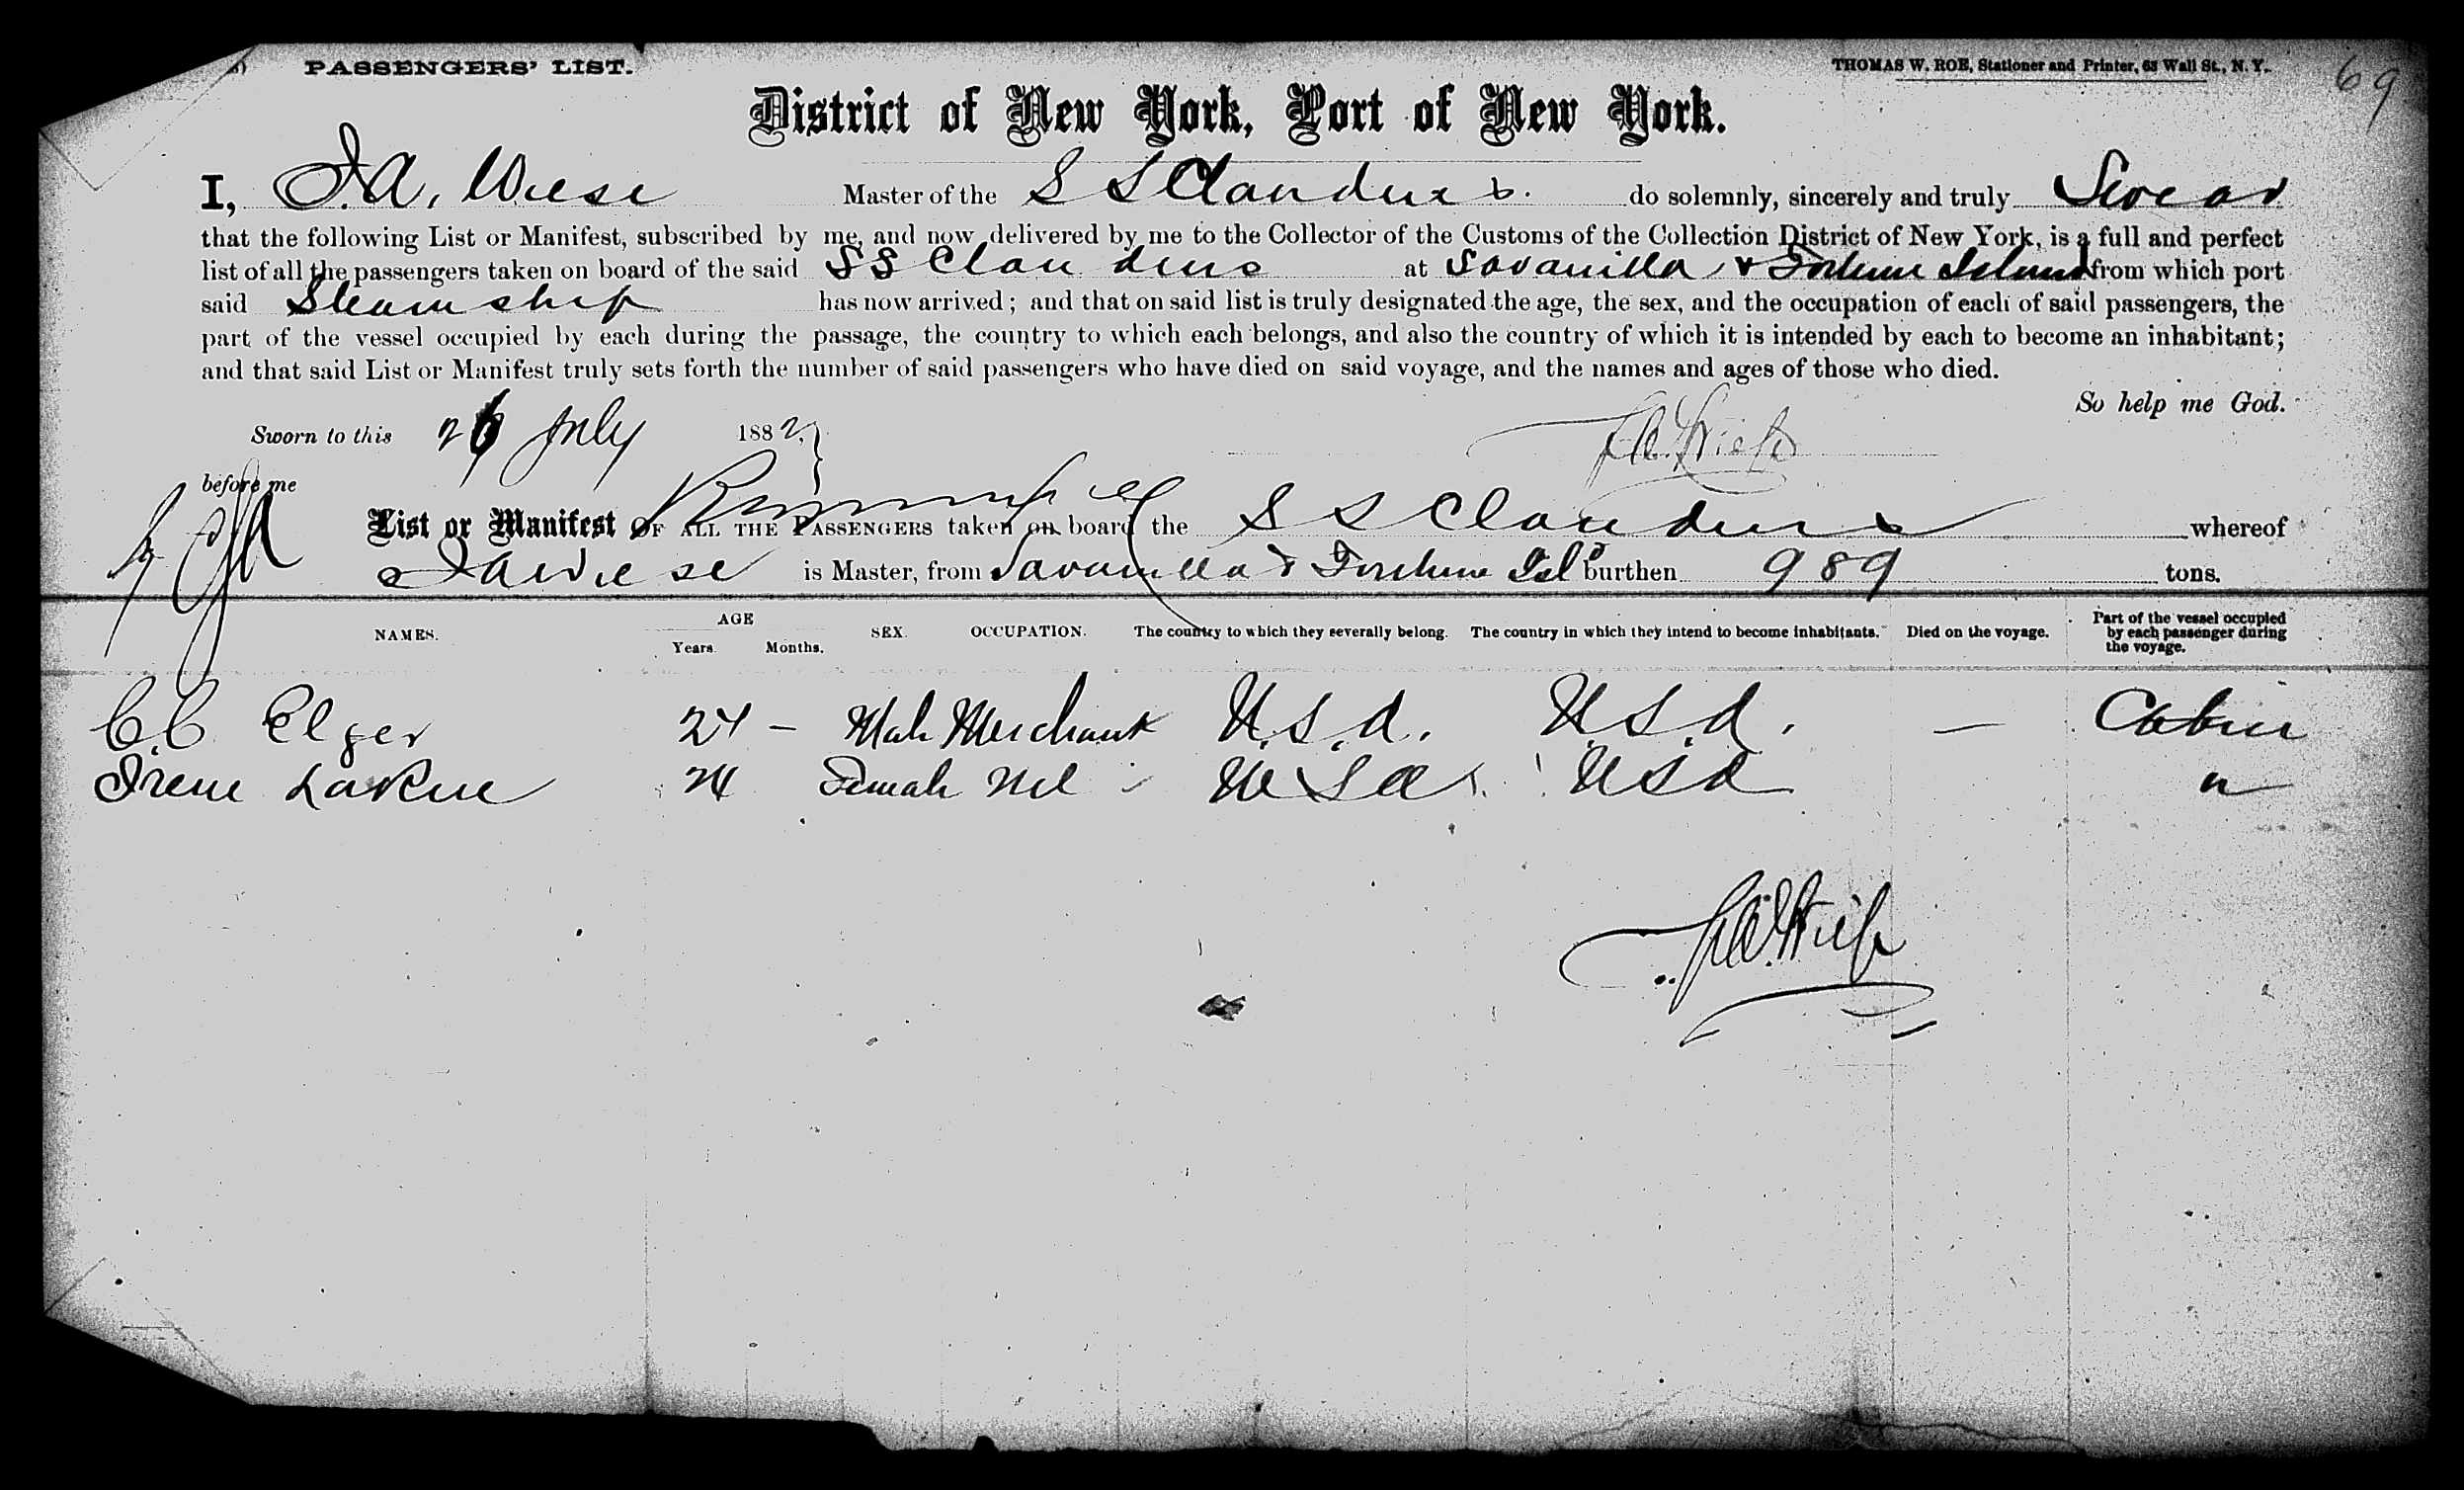 PASSENGERS' LIST.
THOMAS W. ROE, Stationer and Printer, 63 Wall St., N. Y.
69
District of New York, Port of New York.
I, J.A. Wiese Master of the S S Claudius. do solemnly, sincerely and truly Swear
that the following List or Manifest, subscribed by me, and now delivered by me to the Collector of the Customs of the Collection District of New York, is a full and perfect
list of all the passengers taken on board of the said SS Claudius at Savanilla & Fortune Island from which port
said Steamship has now arrived; and that on said list is truly designated the age, the sex, and the occupation of each of said passengers, the
part of the vessel occupied by each during the passage, the country to which each belongs, and also the country of which it is intended by each to become an inhabitant;
and that said List or Manifest truly sets forth the number of said passengers who have died on said voyage, and the names and ages of those who died.
So help me God.
Sworn to this 26 July 1882,
before me
List or Manifest OF ALL THE PASSENGERS taken on board the S S Claudius whereof
J A Wiese is Master, from Savanilla & Fortune Isld burthen 989 tons.
NAMES. AGE Years. Months. SEX. OCCUPATION. The country to which they severally belong. The country in which they intend to become inhabitants. Died on the voyage. Part of the vessel occupied by each passenger during the voyage.
C.C. Elger 24 — Male Merchant U.S.A. U.S.A. — Cabin
Irene LaRue 24 Female U S A U S A "